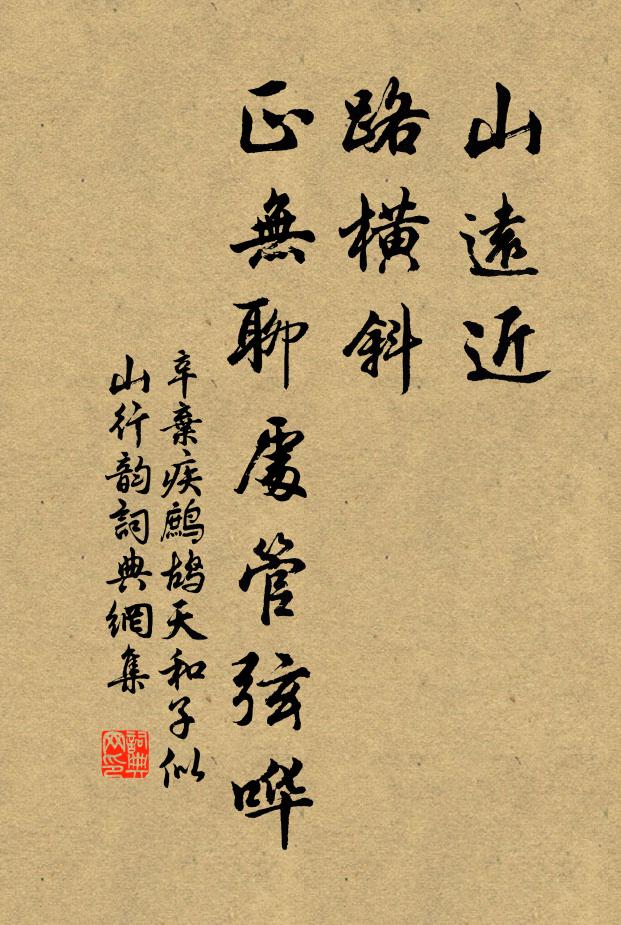 山遠近
路橫斜
正無聊處管弦哗
辛棄疾鷓鴣天和子似
山行韵詞典網集
詞典网印